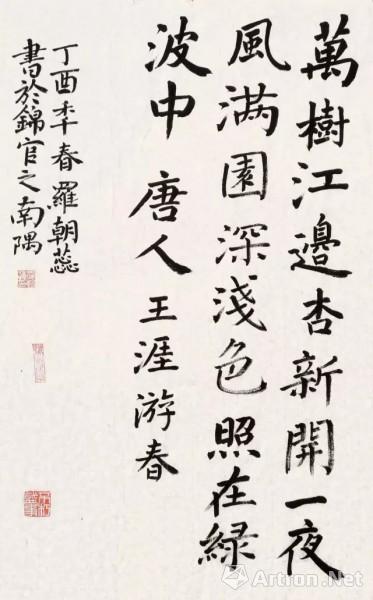 萬樹江邊杏新開一夜
風滿園深淺色照在緑
波中 唐人王涯游春
丁酉季春羅朝蕊
書於錦官之南隅
Artron.Net